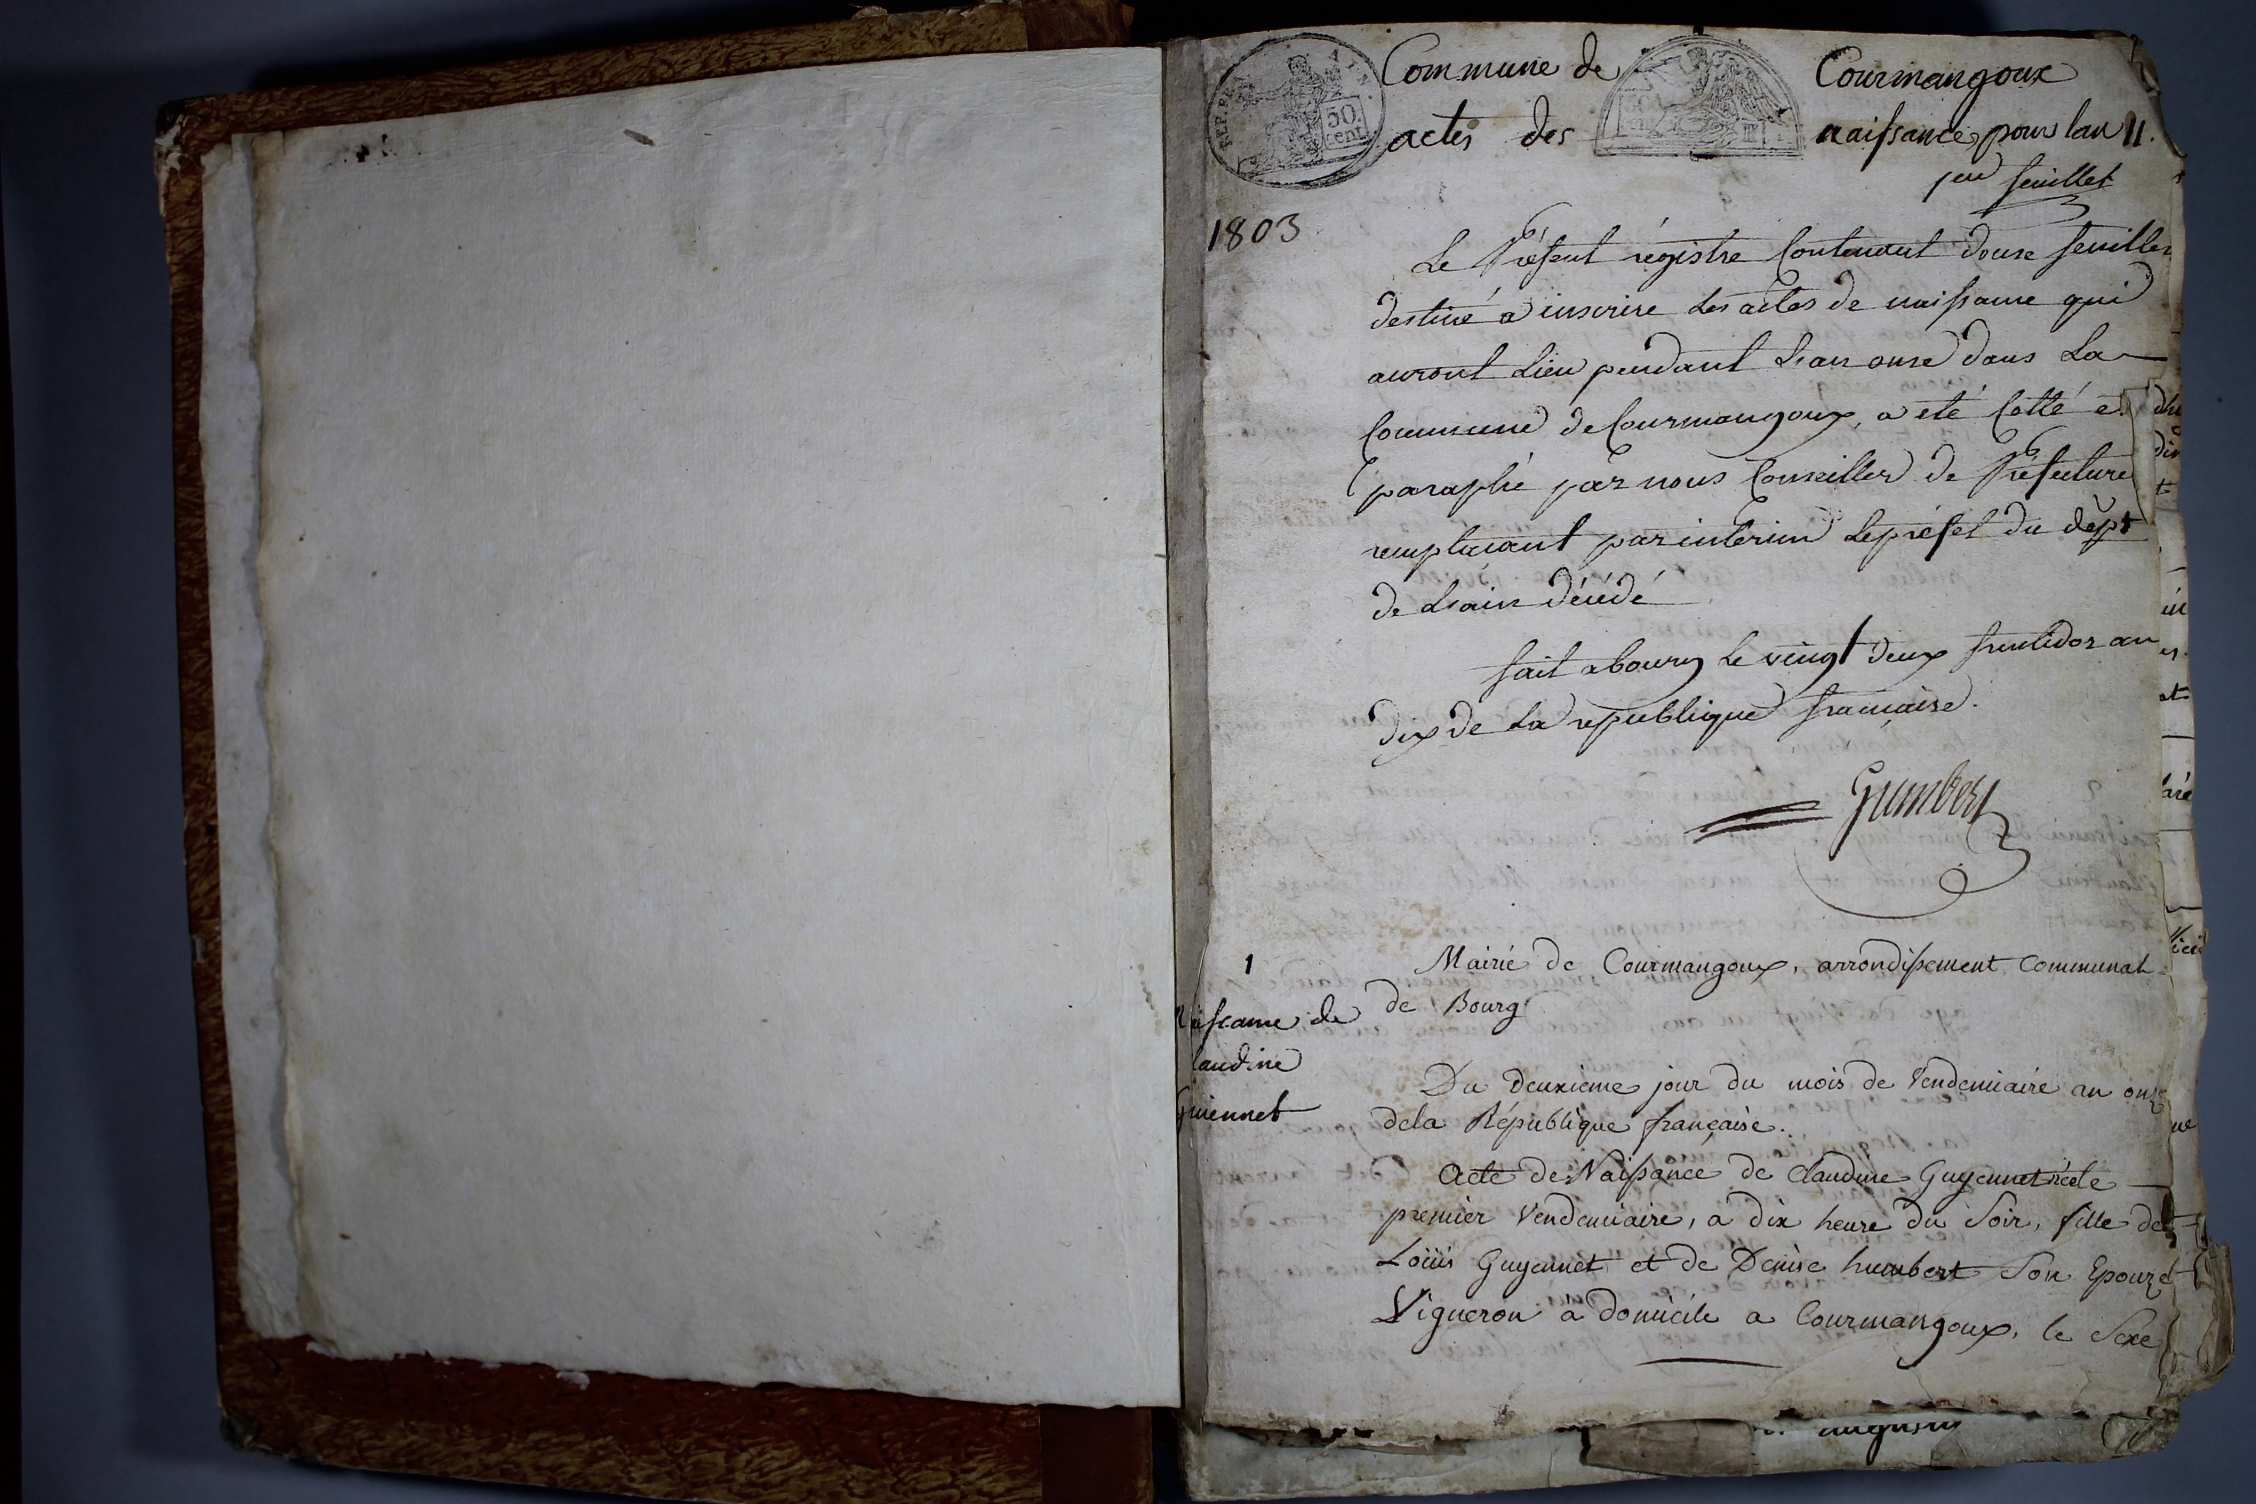 Commune de Courmangoux
actes des naissance pour lan 11.
1er feuillet
REP. FRA
50 cent
1803
Le Présent régistre Contenant douse feuilles
destiné a inscrire Les actes de naissance qui
auront Lieu pendant L'an onse dans La
Commune de Courmangoux, a eté Cotté e
paraphé par nous Conseiller de Préfecture
remplacant par interim Le préfet du dépt
de L'ain décédé
fait a bourg Le vingt deux fructidor an
dix de La republique francaise.
Gumbert
1
Mairie de Courmangoux, arrondissement Communal
de Bourg
Naissance de
laudine
Guiennet
Du deuxieme jour du mois de Vendemiaire an onze
dela République française.
Acte de Naissance de Claudine Guyennet née le
premier Vendemiaire, a dix heure du Soir, fille de
Loüis Guyennet et de Denise humbert Son Epouze
Vigneron a domicile a Courmangoux, le Sexe